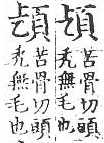 苦骨切頭
秃無毛也
苦骨切頭
秃無毛也